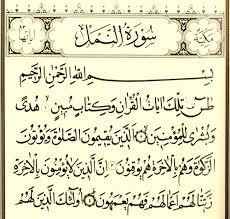 سُورَةُ النَّمْلِ
بِسْمِ اللهِ الرَّحْمٰنِ الرَّحِيمِ
طٰسٓ تِلْكَ اٰيَاتُ الْقُرْاٰنِ وَكِتَابٍ مُبِينٍ هُدًى
وَبُشْرٰى لِلْمُؤْمِنِينَ اَلَّذِينَ يُقِيمُونَ الصَّلٰوةَ وَيُؤْتُونَ
الزَّكٰوةَ وَهُمْ بِالْاٰخِرَةِ هُمْ يُوقِنُونَ اِنَّ الَّذِينَ لَا يُؤْمِنُونَ بِالْاٰخِرَةِ
زَيَّنَّا لَهُمْ اَعْمَالَهُمْ فَهُمْ يَعْمَهُونَ اُولٰئِكَ الَّذِينَ لَهُمْ